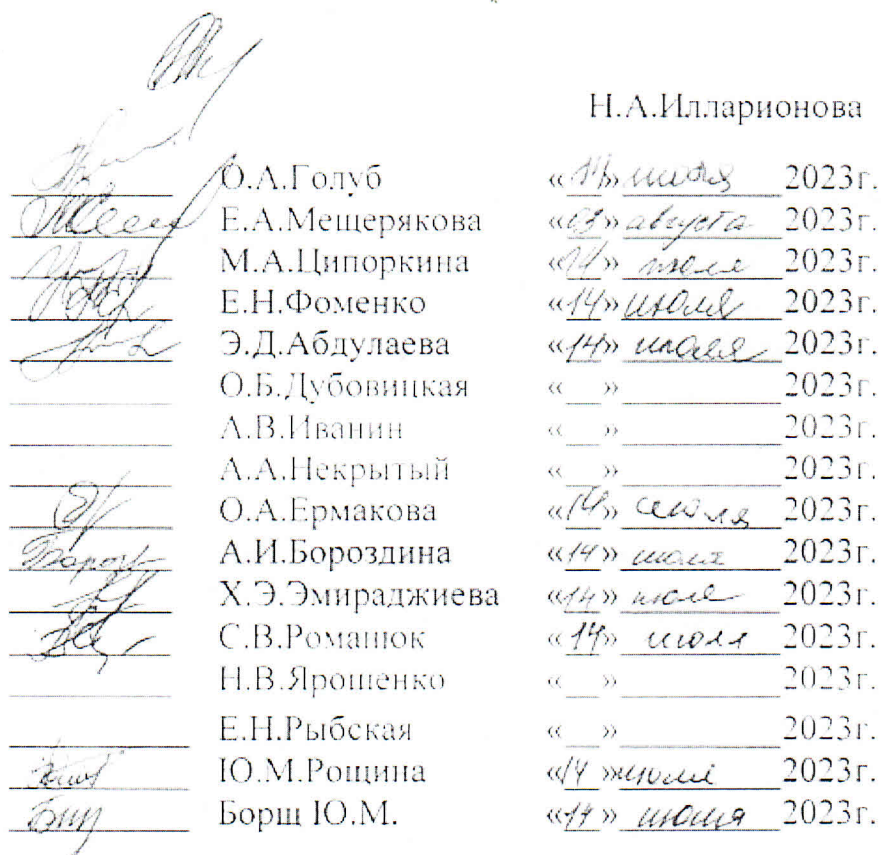 Н.А.Илларионова
О.А.Голуб «14» июля 2023г.
Е.А.Мещерякова «03» августа 2023г.
М.А.Ципоркина «14» июля 2023г.
Е.Н.Фоменко «14» июля 2023г.
Э.Д.Абдулаева «14» июля 2023г.
О.Б.Дубовицкая «__» ________ 2023г.
А.В.Иванин «__» ________ 2023г.
А.А.Некрытый «__» ________ 2023г.
О.А.Ермакова «14» июля 2023г.
А.И.Бороздина «14» июля 2023г.
Х.Э.Эмираджиева «14» июля 2023г.
С.В.Романюк «14» июля 2023г.
Н.В.Ярошенко «__» ________ 2023г.
Е.Н.Рыбская «__» ________ 2023г.
Ю.М.Рощина «14» июля 2023г.
Борщ Ю.М. «14» июля 2023г.